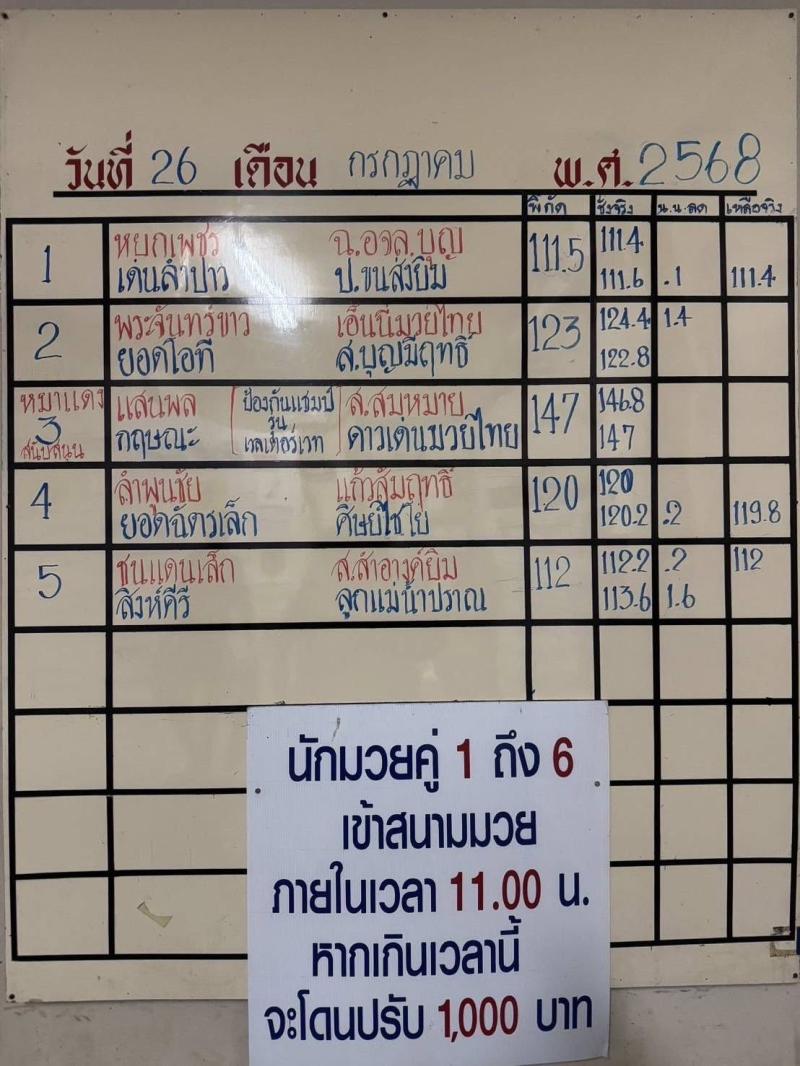 วันที่ 26 เดือน กรกฎาคม พ.ศ. 2568
พิกัด ชั่งจริง น.น.ลด เหลือจริง
1 หยกเพชร ฉ.อจล.บุญ 111.5 111.4
เด่นลำปาว ป.ขนส่งยิม 111.6 .1 111.4
2 พระจันทร์ขาว เอ็นนี่มวยไทย 123 124.4 1.4
ยอดโอที ส.บุญมีฤทธิ์ 122.8
หมาแดง 3 สนับสนุน
แสนพล ส.สมหมาย 147 146.8
กฤษณะ ดาวเด่นมวยไทย 147
ป้องกันแชมป์
รุ่น
เวลเตอร์เวท
4 ลำพูนชัย แก้วสัมฤทธิ์ 120 120
ยอดฉัตรเล็ก ศิษย์ไชโย 120.2 .2 119.8
5 ชนแดนเล็ก ส.สำอางค์ยิม 112 112.2 .2 112
สิงห์คีรี ลูกแม่น้ำปราณ 113.6 1.6
นักมวยคู่ 1 ถึง 6
เข้าสนามมวย
ภายในเวลา 11.00 น.
หากเกินเวลานี้
จะโดนปรับ 1,000 บาท